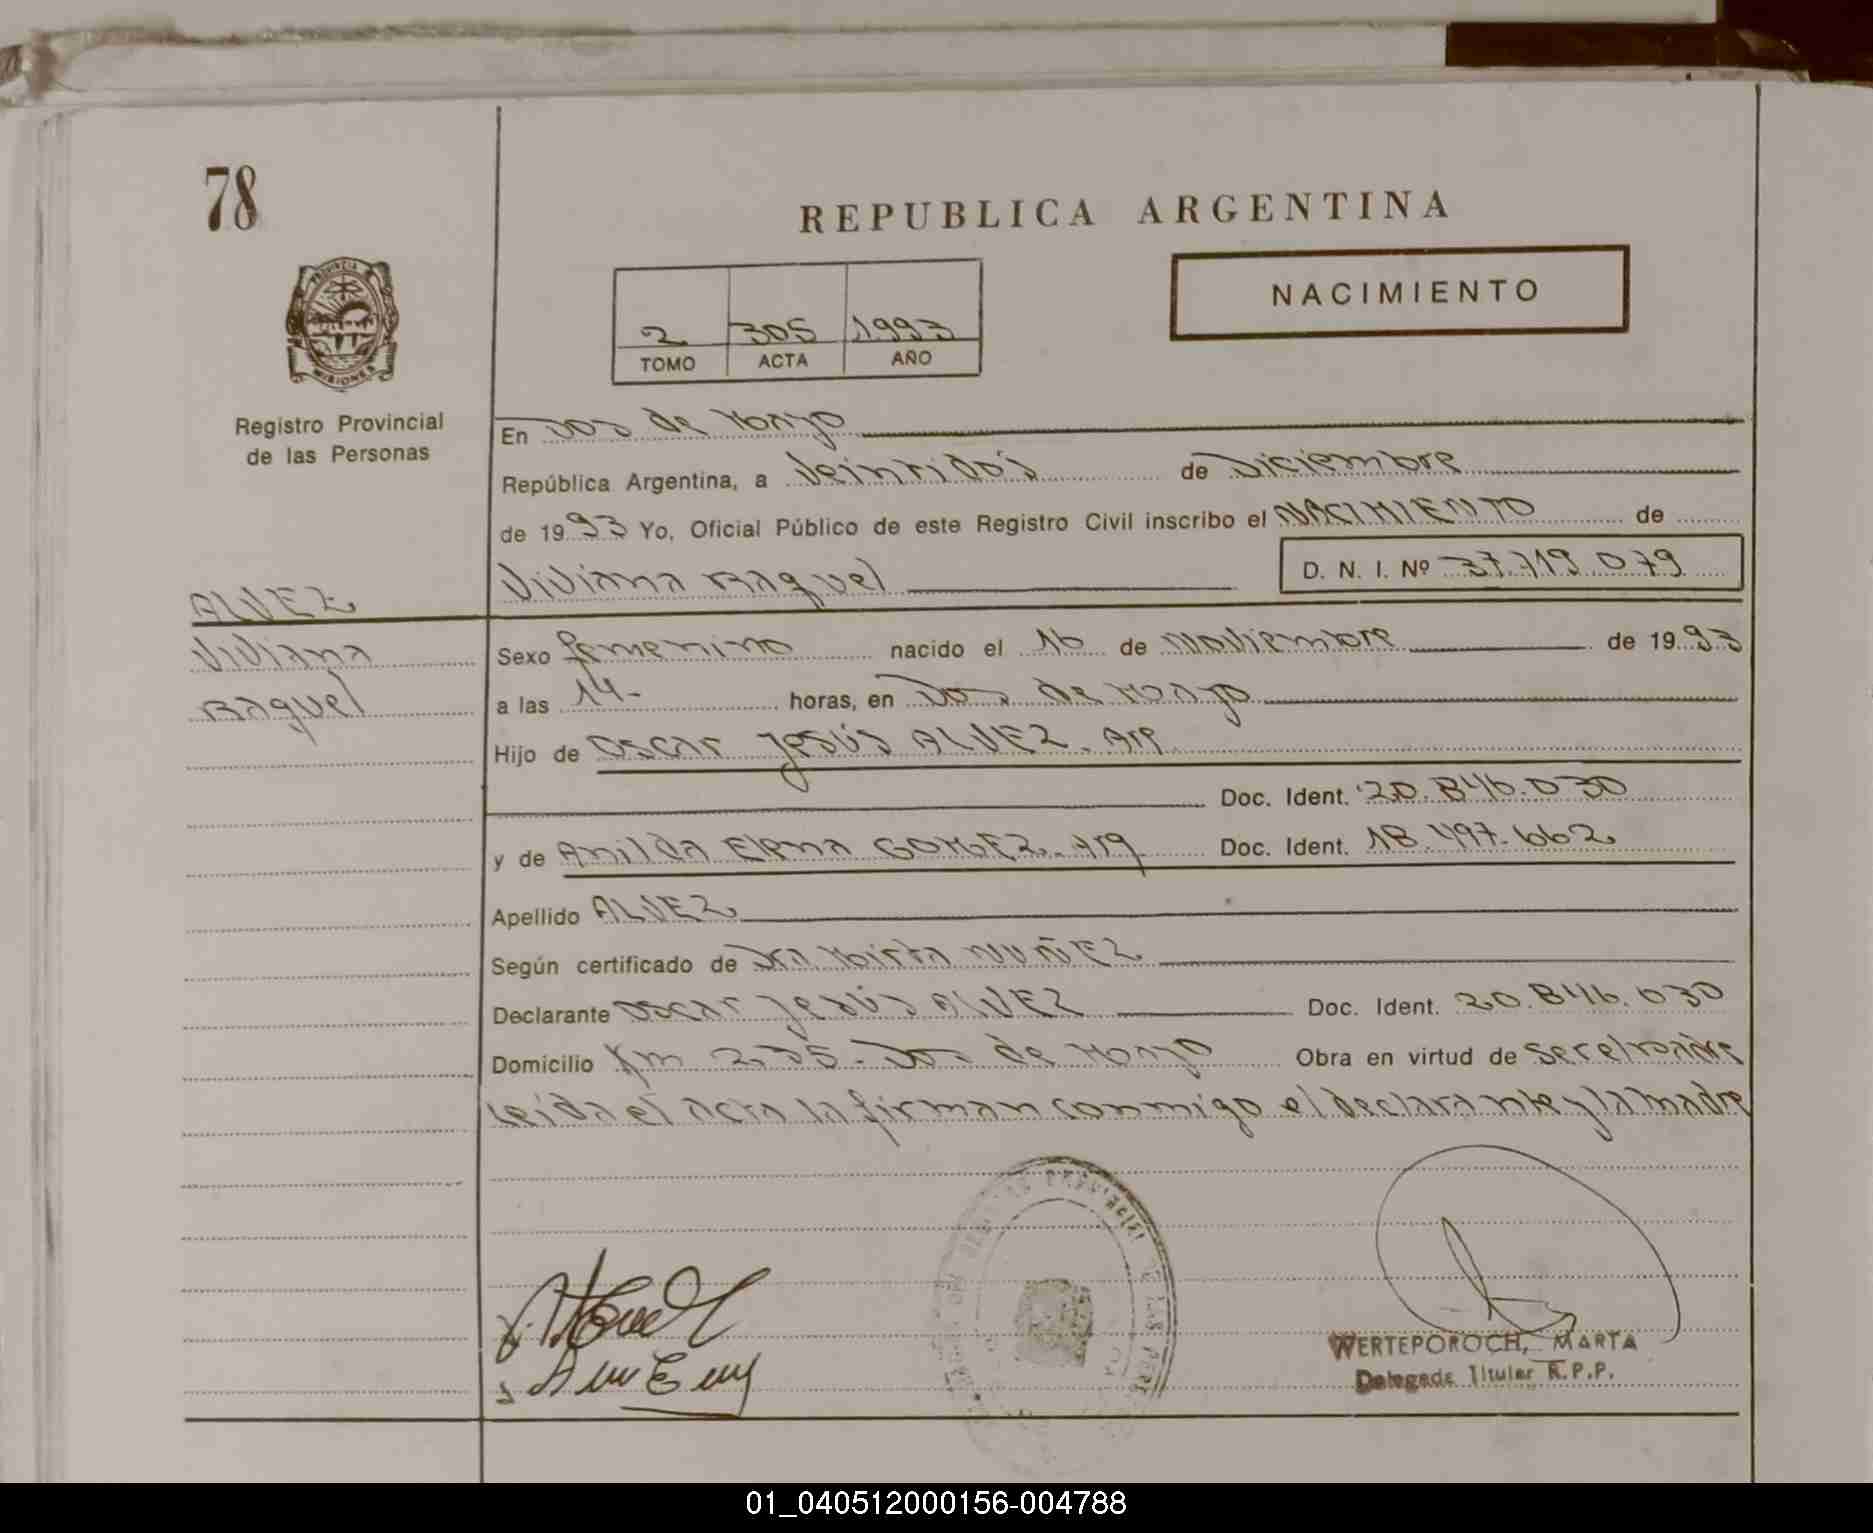 78
REPUBLICA ARGENTINA
NACIMIENTO
2 305 1993
TOMO ACTA AÑO
PROVINCIA DE
MISIONES
Registro Provincial
de las Personas
En Dos de Mayo
República Argentina, a Veintidós de Diciembre
de 1993 Yo, Oficial Público de este Registro Civil inscribo el NACIMIENTO de
Viviana Raquel D. N. I. Nº 37.719.079
ALVEZ
Viviana
Raquel
Sexo femenino nacido el 16 de Noviembre de 1993
a las 14- horas, en Dos de Mayo
Hijo de Oscar Jesús ALVEZ. Arg
Doc. Ident. 20.846.030
y de Anilda Elena GOMEZ. Arg Doc. Ident. 18.497.662
Apellido ALVEZ
Según certificado de Dra Mirta NUÑEZ
Declarante Oscar Jesús ALVEZ Doc. Ident. 20.846.030
Domicilio Km 235- Dos de Mayo Obra en virtud de Ser el padre
Leida el acta la firman conmigo el declarante y la madre
WERTEPOROCH, MARTA
Delegada Titular R.P.P.
01_040512000156-004788